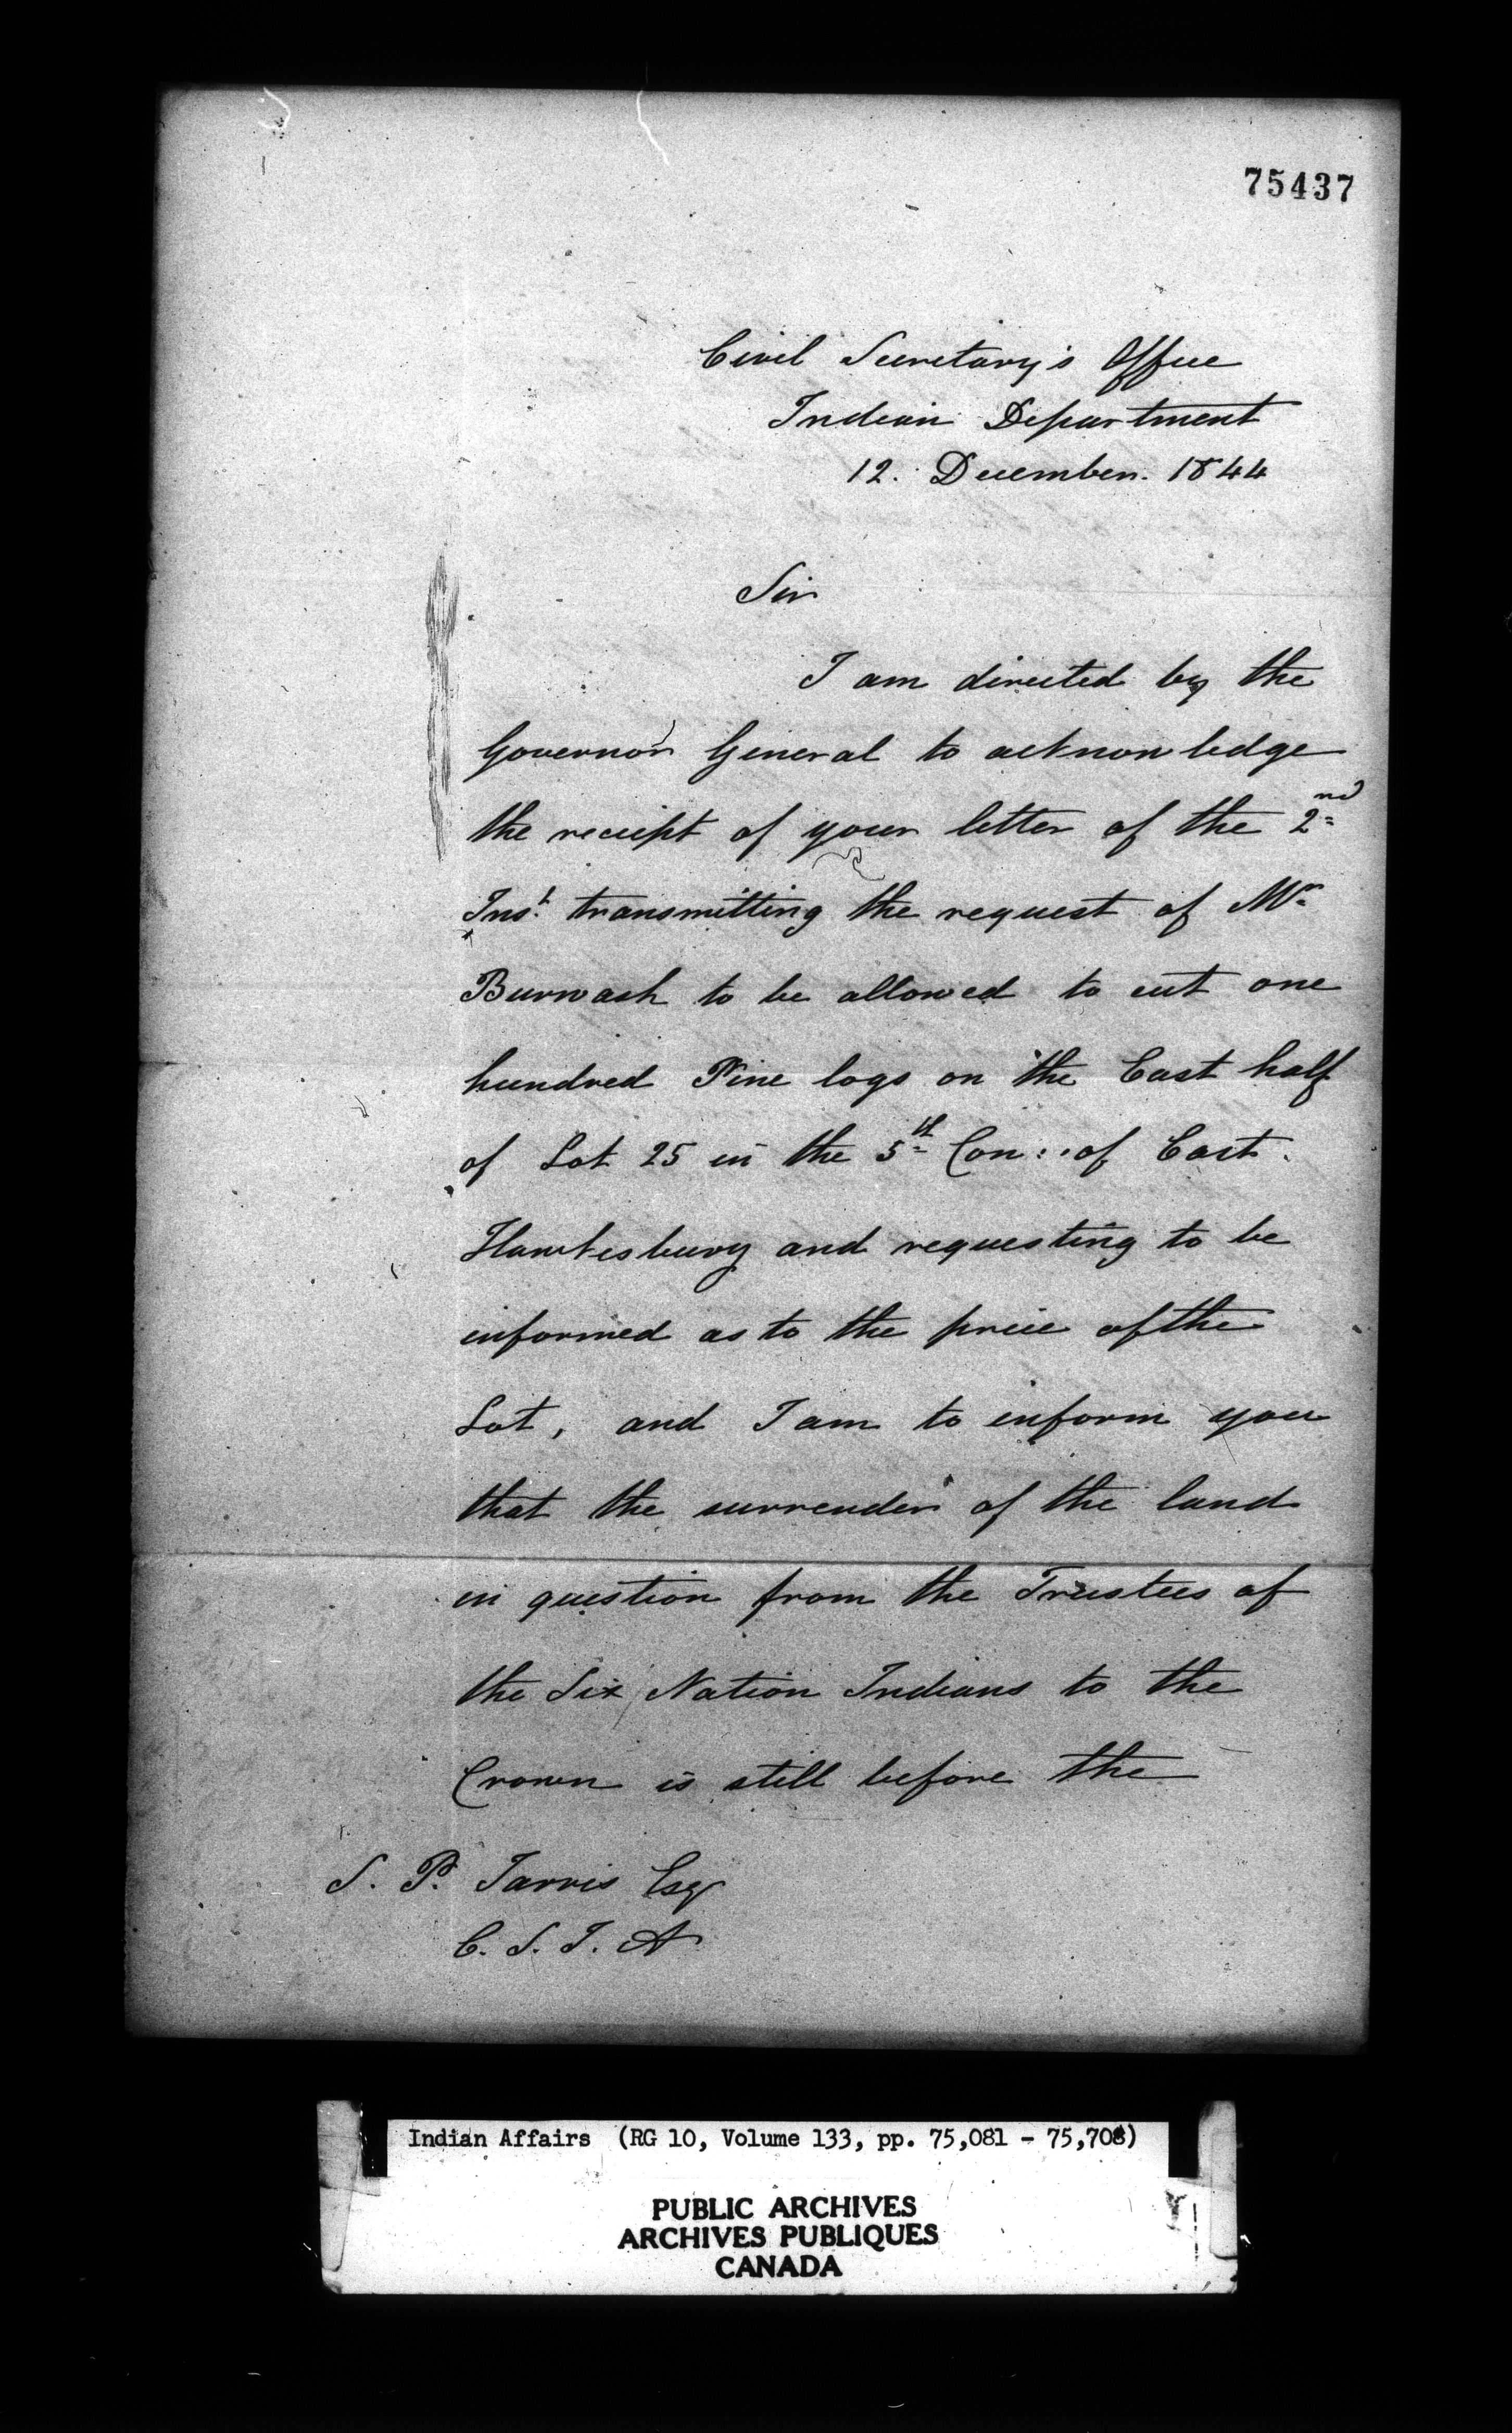 75437
Civil Secretary's Office
Indian Department
12. December. 1844
Sir
I am directed by the
Governor General to acknowledge
the receipt of your letter of the 2nd
Inst. transmitting the request of Mr
Burwash to be allowed to cut one
hundred Pine logs on the East half
of Lot 25 in the 5th Con: of East
Hawkesbury and requesting to be
informed as to the price of the
Lot, and I am to inform you
that the surrender of the land
in question from the Trustees of
the Six Nation Indians to the
Crown is still before the
S. P. Jarvis Esq
C. S. I. A
Indian Affairs (RG 10, Volume 133, pp. 75,081 - 75,708)
PUBLIC ARCHIVES
ARCHIVES PUBLIQUES
CANADA